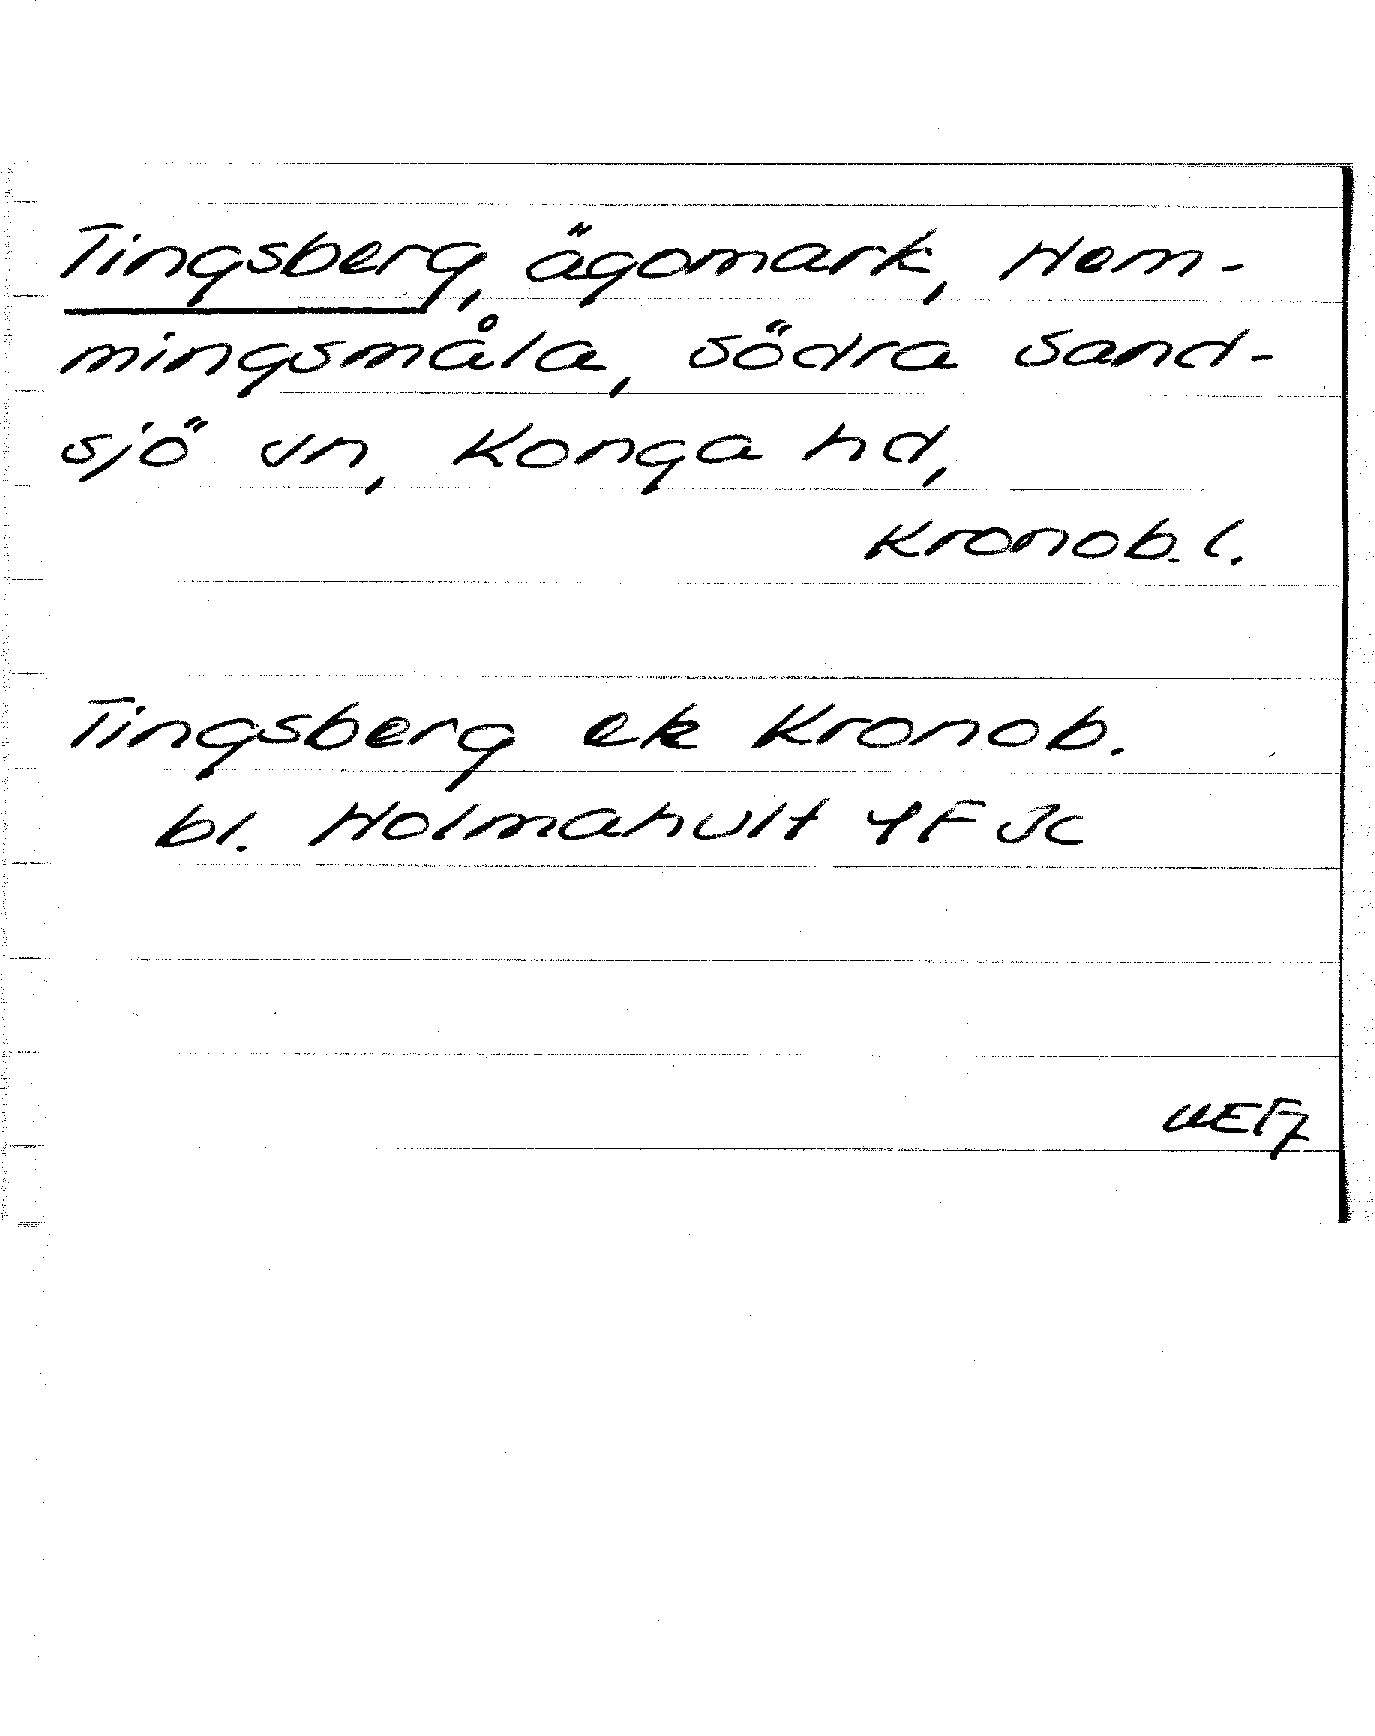 Tingsberg, ägomark, Hem-
mingsmåla, södra Sand-
sjö sn, Konga hd,
Kronob. l.
Tingsberg ek Kronob.
bl. Holmahult 4F 3c